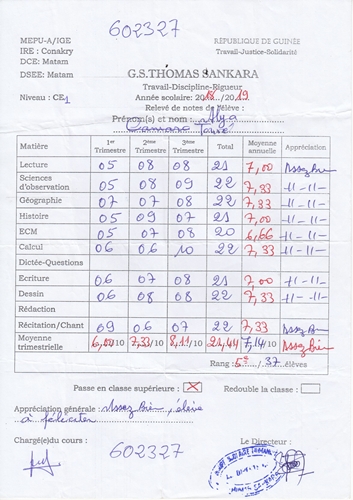 602327
MEPU-A/IGE
RÉPUBLIQUE DE GUINÉE
IRE : Conakry
Travail-Justice-Solidarité
DCE: Matam
DSEE: Matam
G.S.THOMAS SANKARA
Travail-Discipline-Rigueur
Niveau : CE1
Année scolaire: 2018/2019
Relevé de notes de l'élève :
Prénom(s) et nom : Alya
Camara
Matière 1er Trimestre 2ème Trimestre 3ème Trimestre Total Moyenne annuelle Appréciation
Lecture 05 08 08 21 7,00 Assez Bien
Sciences d'observation 05 08 09 22 7,33 -11-11-
Géographie 07 07 08 22 7,33 -11-11-
Histoire 05 09 07 21 7,00 -11-11-
ECM 05 07 08 20 6,66 -11-11-
Calcul 06 06 10 22 7,33 -11-11-
Dictée-Questions
Ecriture 06 07 08 21 7,00 -11-11-
Dessin 06 08 08 22 7,33 -11-11-
Rédaction
Récitation/Chant 09 06 07 22 7,33 Assez Bien
Moyenne trimestrielle 6,00/10 7,33/10 8,11/10 21,44 7,14/10 Assez Bien
Rang : 5e/37 élèves
Passe en classe supérieure : X Redouble la classe :
Appréciation générale : Assez Bien, élève
à féliciter
Chargé(e)du cours :
Le Directeur :
602327